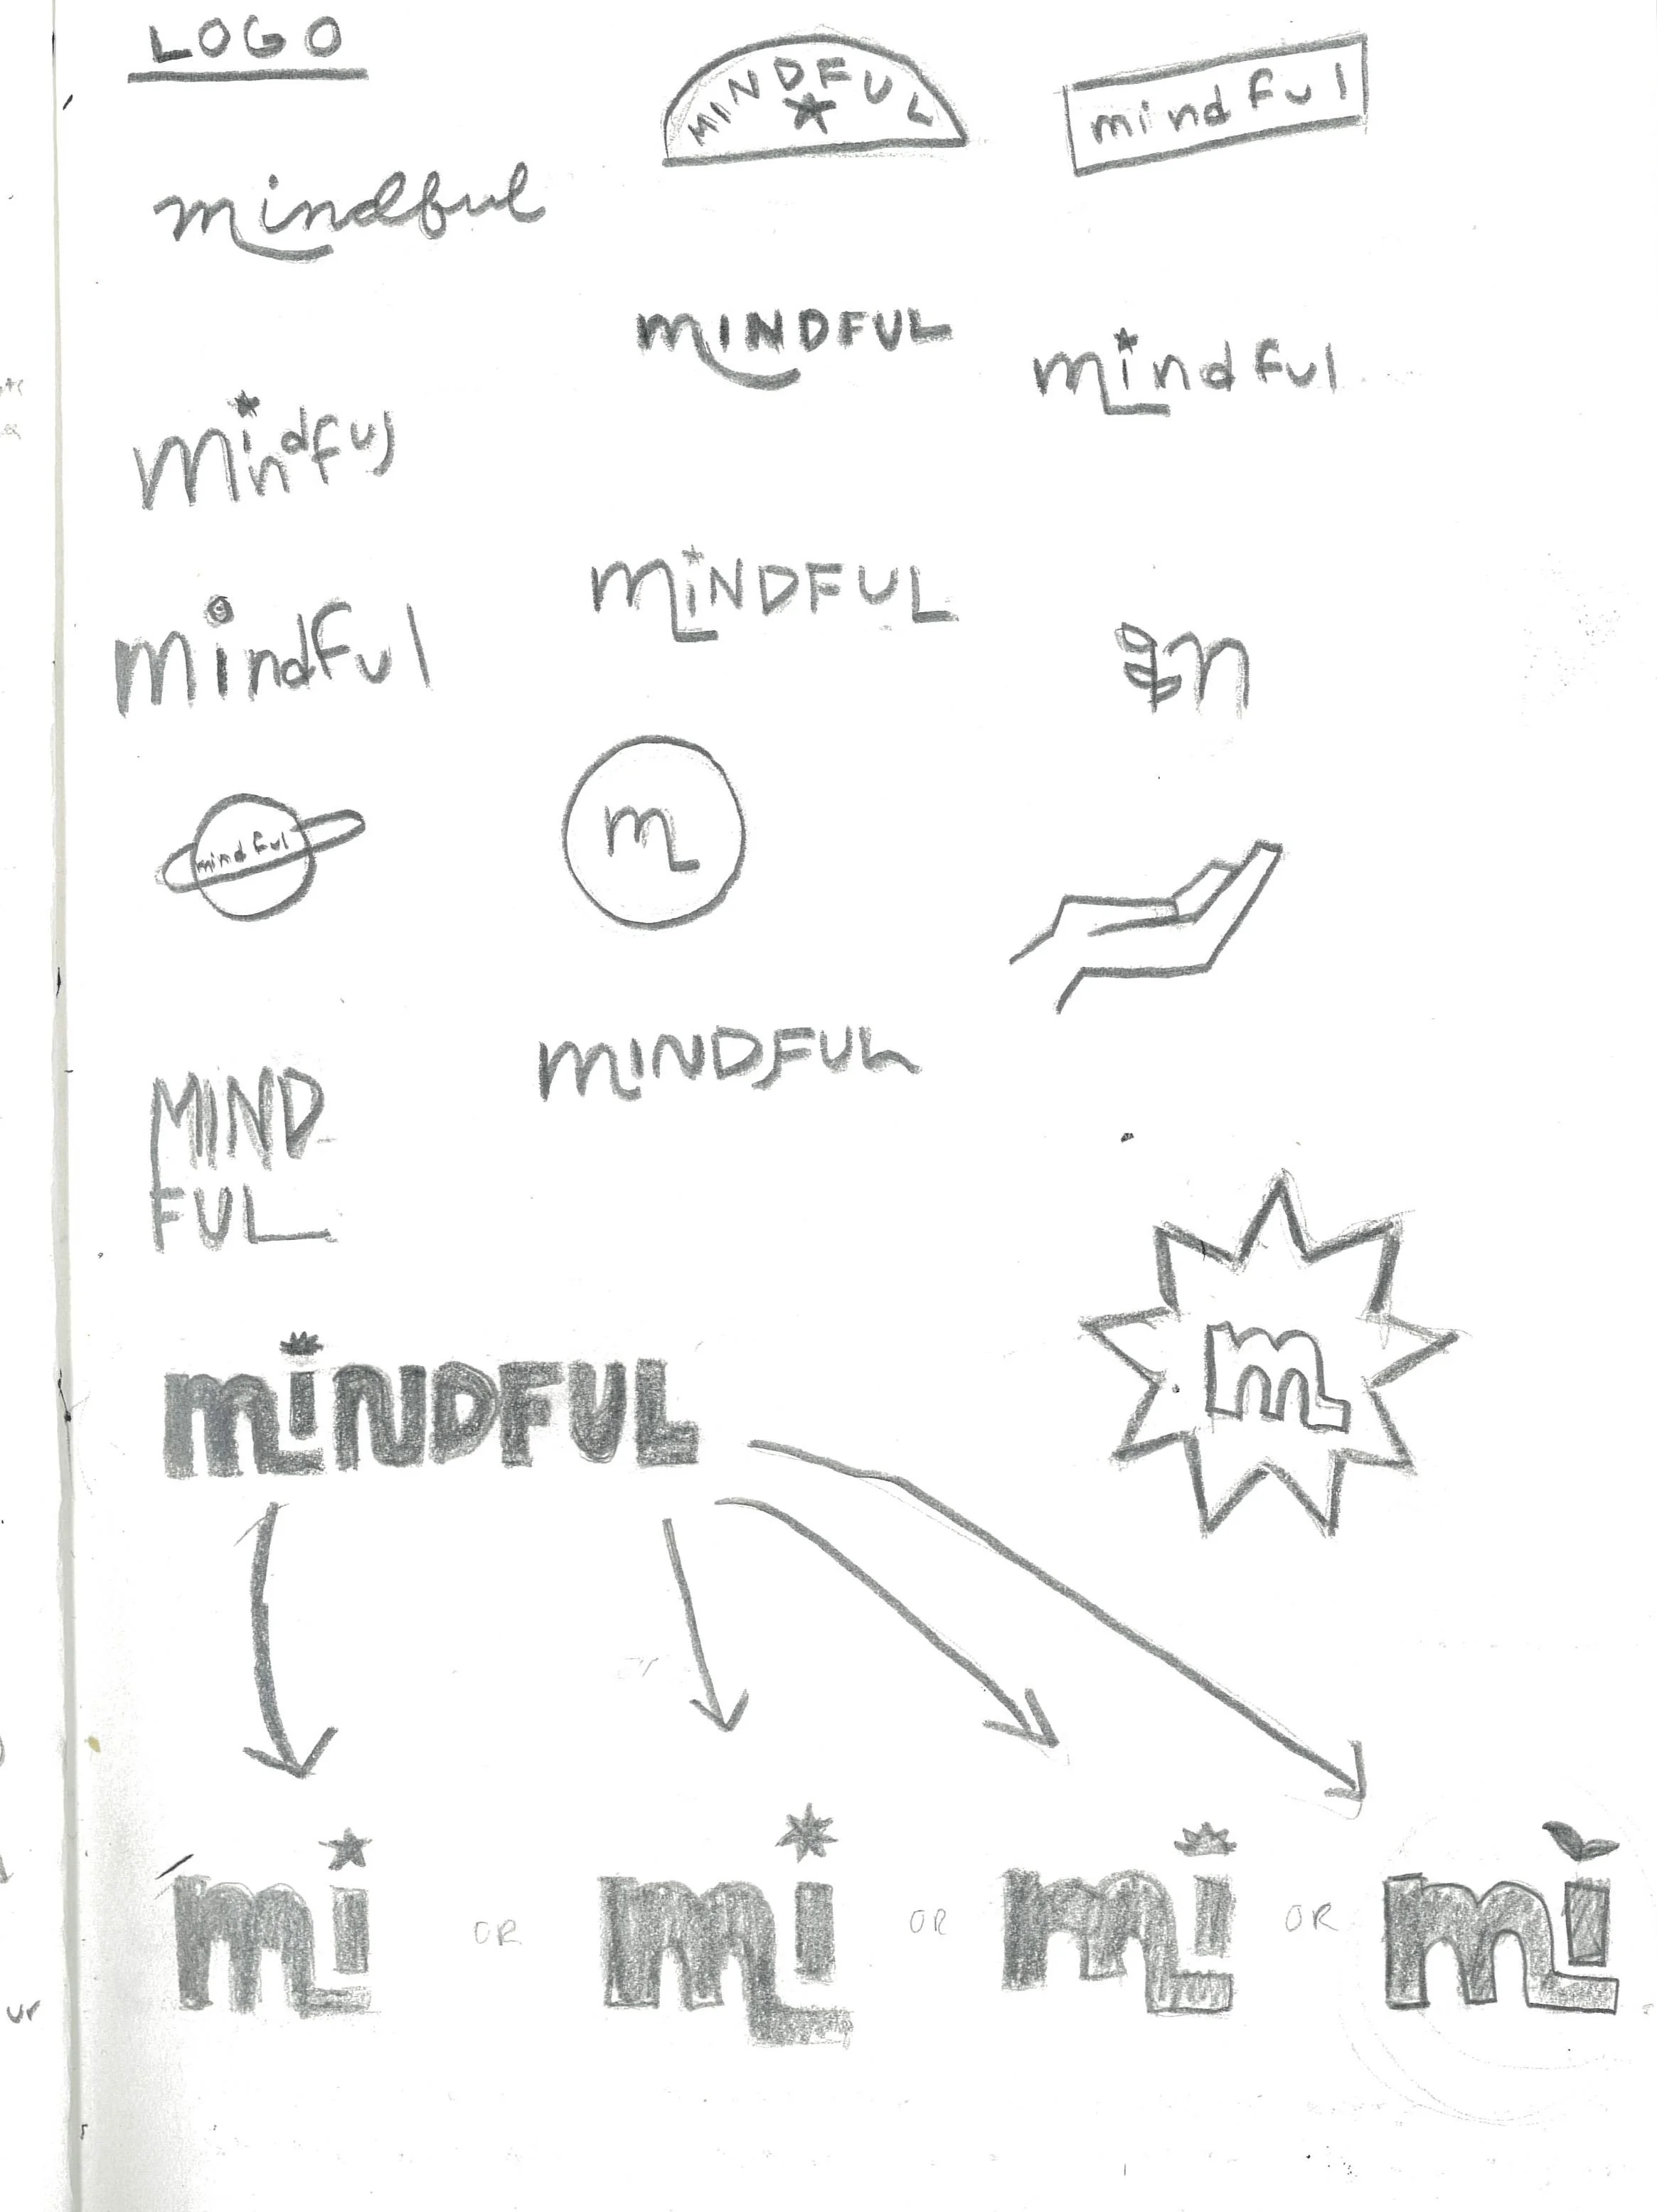 LOGO
MINDFUL
mindful
mindful
MINDFUL
mindful
mindful
MINDFUL
mindful
m
mindful
m
MINDFUL
MIND
FUL
m
MINDFUL
mi OR mi OR mi OR mi
ur